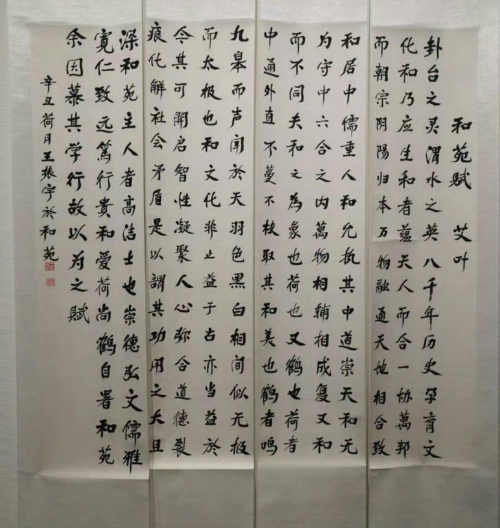 和苑赋 艾叶
卦台之灵渭水之英八千年历史孕育文
化和乃应生和者蕴天人而合一协萬邦
而朝宗阴阳归本万物融通天地相合致
和居中儒重人和允执其中道崇天和无
为守中六合之内萬物相辅相成复又和
而不同夫和之為象也荷也又鹤也荷者
中通外直不蔓不枝取其和美也鹤者鸣
九皋而声闻於天羽色黑白相间似无极
而太极也和文化非止益于古亦当益於
今其可開启智性凝聚人心弥合道德裂
痕化解社会矛盾是以謂其功用之大且
深和苑主人者高洁士也崇德弘文儒雅
寬仁致远篤行贵和爱荷尚鹤自署和苑
余因慕其学行故以为之赋
辛丑荷月王振宇於和苑